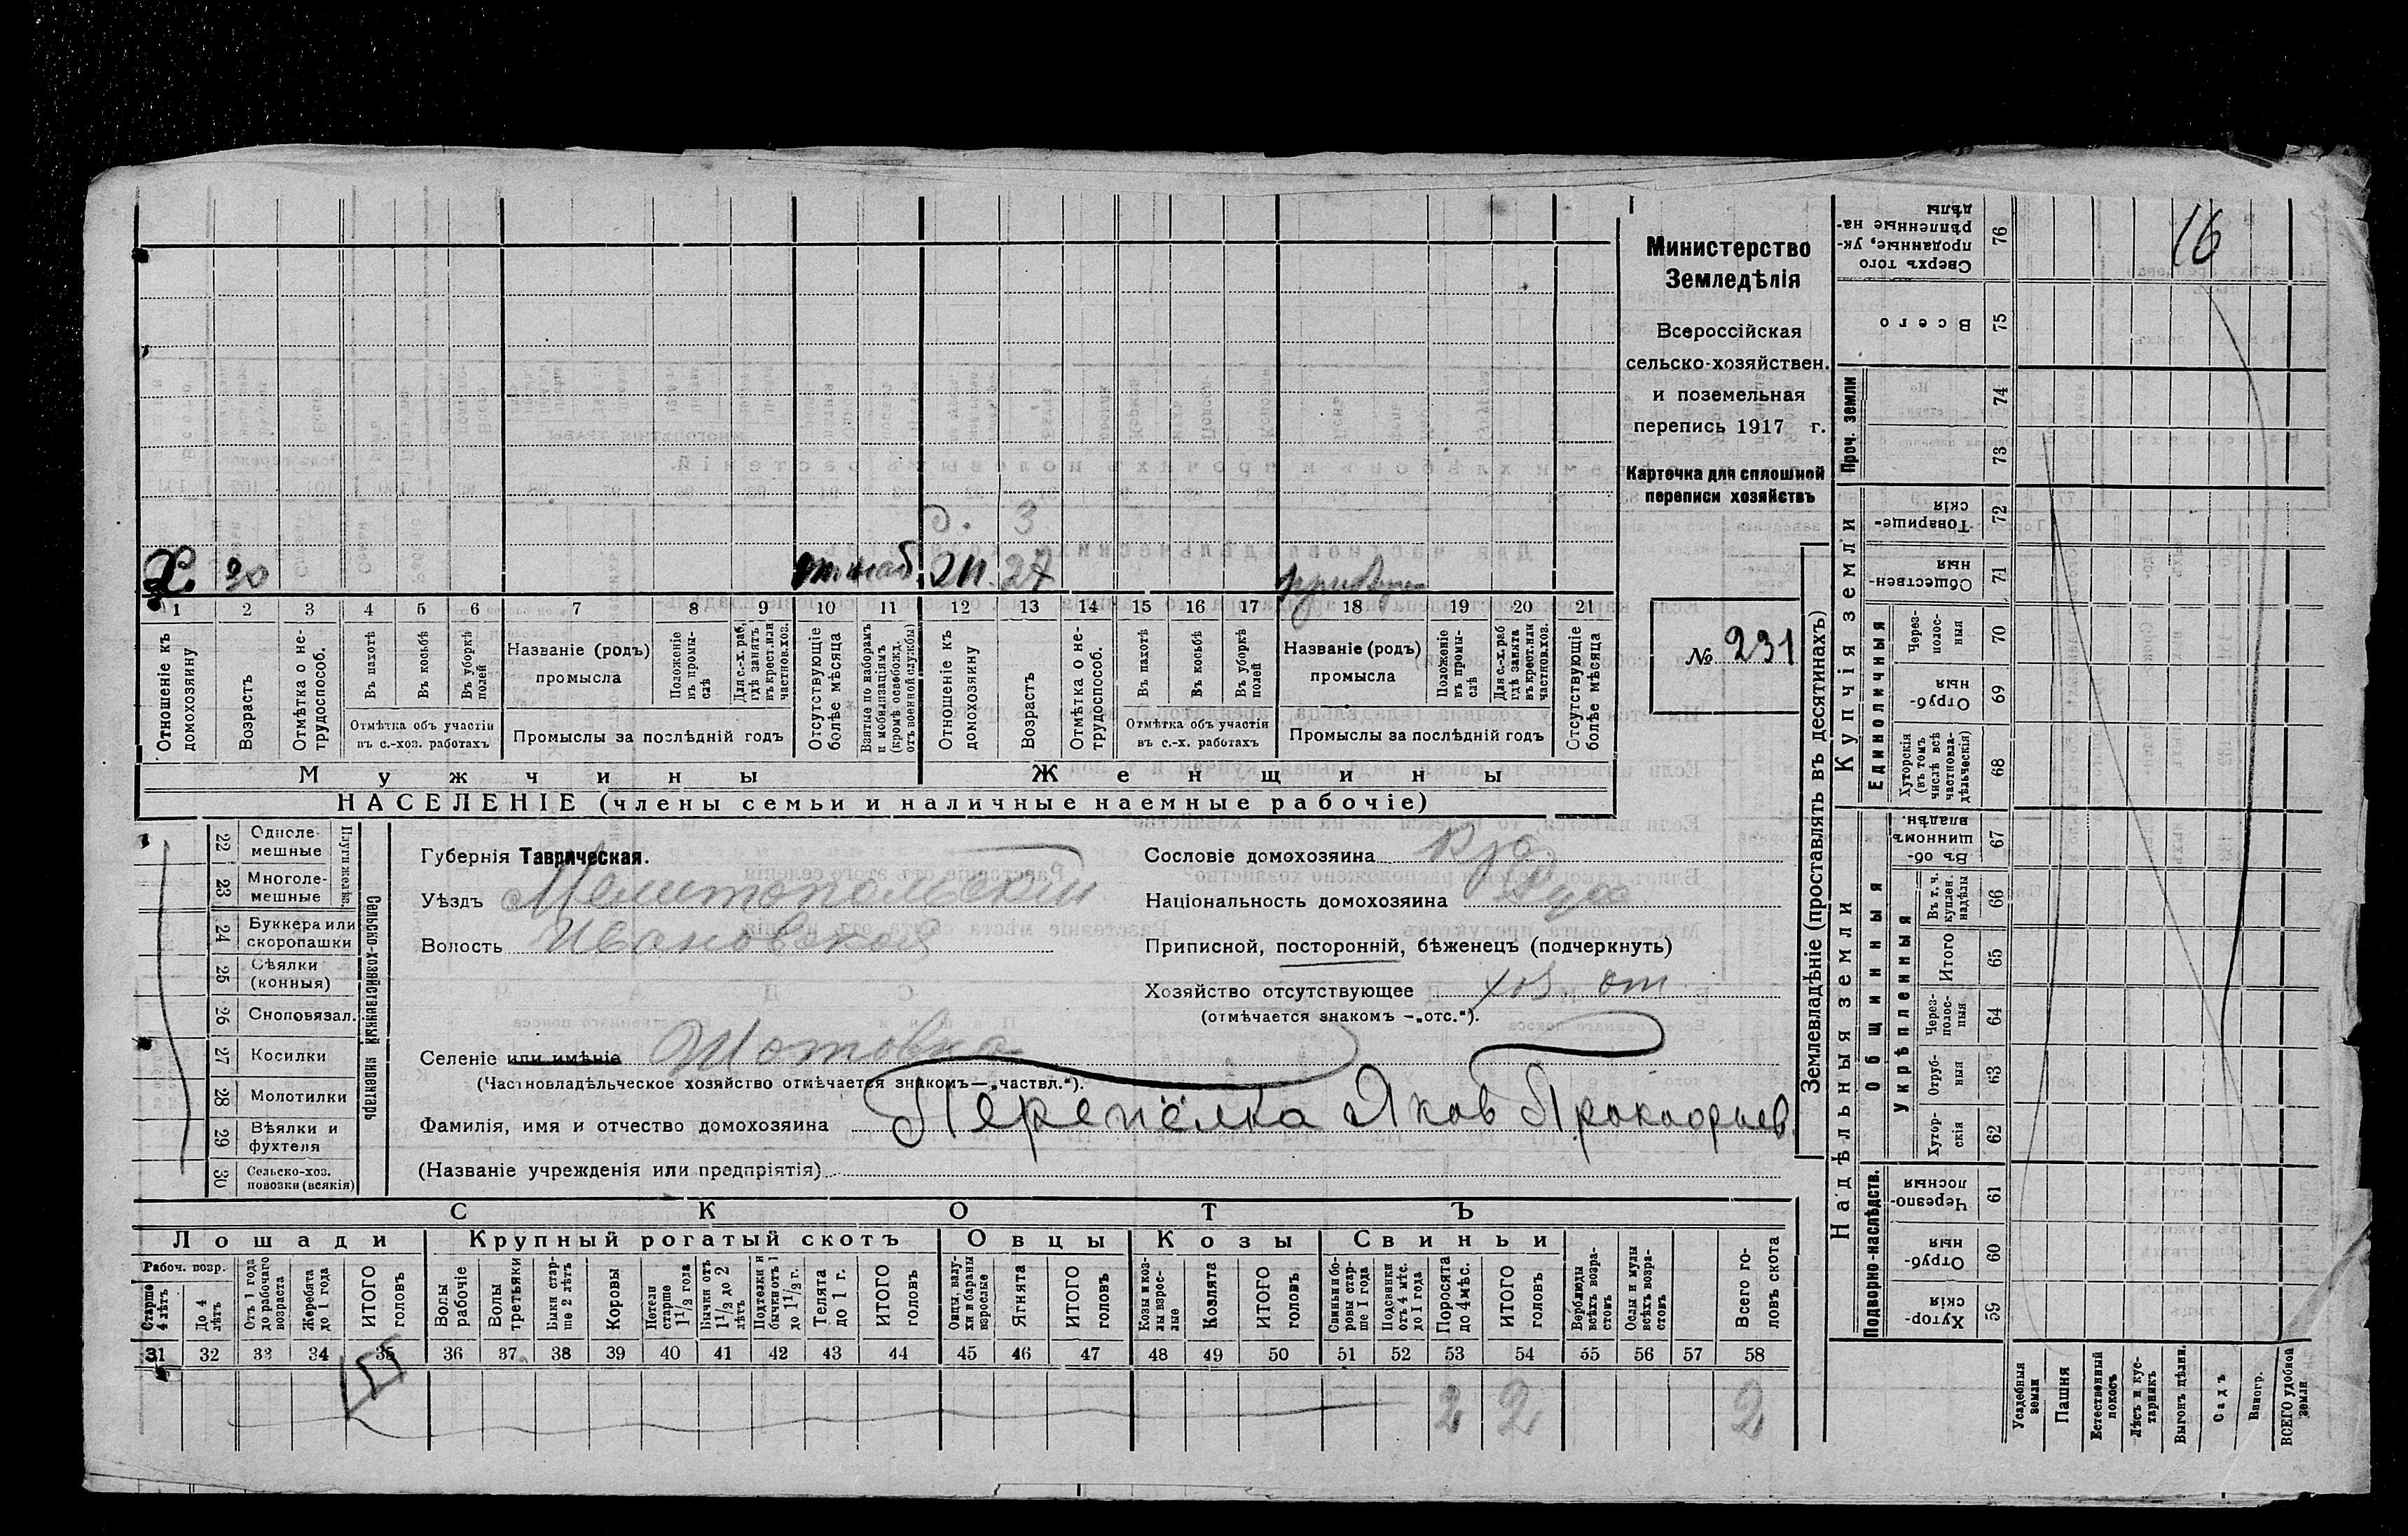 16
Министерство
Земледѣлія
Всероссійская
сельско-хозяйствен.
и поземельная
перепись 1917 г.
Карточка для сплошной
переписи хозяйствъ
№ 231
3
Х. 30 27
1 2 3 4 5 6 7 8 9 10 11 12 13 14 15 16 17 18 19 20 21
Отношеніе къ домохозяину
Возрастъ
Отмѣтка о нетрудоспособ.
Въ пахотѣ
Въ косьбѣ
Въ уборкѣ полей
Отмѣтка объ участіи
въ с.-хоз. работахъ
Названіе (родъ)
промысла
Положеніе въ промыслѣ
Для с.-х. раб, гдѣ занятъ въ крест. или частнов. хоз.
Промыслы за послѣдній годъ
Отсутствующіе болѣе мѣсяца
Взятые по наборамъ и мобилизаціямъ (кромѣ освобожд. отъ военной службы)
Отношеніе къ домохозяину
Возрастъ
Отмѣтка о нетрудоспособ.
Въ пахотѣ
Въ косьбѣ
Въ уборкѣ полей
Отмѣтка объ участіи
въ с.-х. работахъ
Названіе (родъ)
промысла
Положеніе въ промыслѣ
Для с.-х. раб гдѣ занята въ крест. или частнов. хоз.
Промыслы за послѣдній годъ
Отсутствующіе болѣе мѣсяца
Мужчины Женщины
НАСЕЛЕНІЕ (члены семьи и наличные наемные рабочіе)
Сельско-хозяйственный инвентарь
Плуги желѣз.
22 Одноле-
мешные
23 Многоле-
мешные
24 Буккера или
скоропашки
25 Сѣялки
(конныя)
26 Сноповязал.
27 Косилки
28 Молотилки
29 Вѣялки и
фухтеля
30 Сельско-хоз.
повозки (всякія)
Губернія Таврическая.
Уѣздъ Мелитопольскій
Волость Ивановская
Селеніе или имѣніе Шотовка
(Частновладѣльческое хозяйство отмѣчается знакомъ—„частвл.“).
Фамилія, имя и отчество домохозяина Перепёлка Яков Прокофьев
(Названіе учрежденія или предпріятія)
Сословіе домохозяина
Національность домохозяина
Приписной, посторонній, бѣженецъ (подчеркнуть)
Хозяйство отсутствующее хоз. от
(отмѣчается знакомъ —„отс.“).
СКОТЪ
Лошади Крупный рогатый скотъ Овцы Козы Свиньи
Рабоч. возр.
Старше 4 лѣтъ
До 4 лѣтъ
Отъ 1 года до рабочаго возраста
Жеребята до 1 года
ИТОГО головъ
Волы рабочіе
Волы третьяки
Быки старше 2 лѣтъ
Коровы
Нетели старше 1½ года
Бычки отъ 1½ до 2 лѣтъ
Подтелки и бычки отъ 1 до 1½ г.
Телята до 1 г.
ИТОГО головъ
Овцы, валухи и бараны взрослые
Ягнята
ИТОГО головъ
Козы и козлы взрослые
Козлята
ИТОГО головъ
Свиньи и боровы старше 1 года
Подсвинки отъ 4 мѣс. до 1 года
Поросята до 4 мѣс.
ИТОГО головъ
Верблюды всѣхъ возрастовъ
Ослы и мулы всѣхъ возрастовъ
Всего головъ скота
31 32 33 34 35 36 37 38 39 40 41 42 43 44 45 46 47 48 49 50 51 52 53 54 55 56 57 58
2 2 2
Землевладѣніе (проставлять въ десятинахъ)
Купчія земли
Надѣльныя земли
Проч. земли
Единоличныя
Общинныя
Укрѣпленныя
Подворно-наслѣдств.
Сверхъ того проданные, укрѣпленные надѣлы 76
Всего 75
74
73
Товарищескія 72
Общественныя 71
Черезполосныя 70
Отрубныя 69
Хуторскія (въ томъ числѣ всѣ частновладѣльческія) 68
Въ общинномъ владѣн. 67
Въ т. ч. куплен. надѣлы 66
Итого 65
Черезполосныя 64
Отрубныя 63
Хуторскія 62
Черезполосныя 61
Отрубныя 60
Хуторскія 59
Усадебныя земли
Пашня
Естественный покосъ
Лѣсъ и кустарникъ
Выгонъ цѣлин.
Садъ
Виногр.
ВСЕГО удобной земли